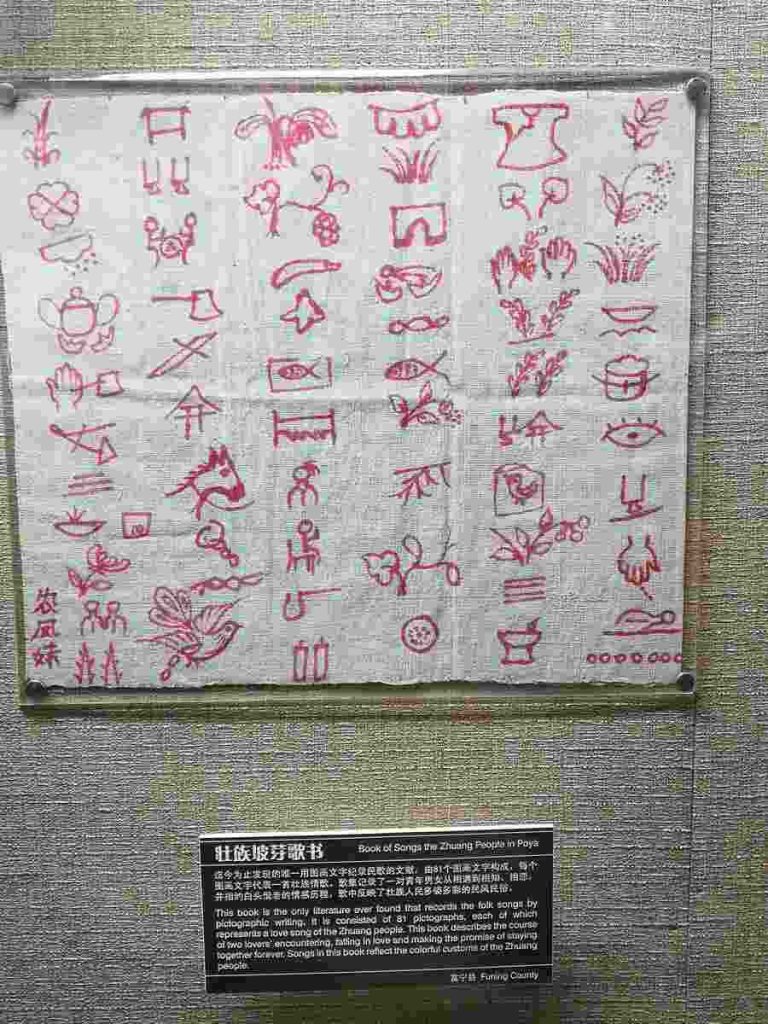 农凤妹
壮族坡芽歌书 Book of Songs the Zhuang People in Poya
迄今为止发现的唯一用图画文字纪录民歌的文献，由81个图画文字构成，每个
图画文字代表一首壮族情歌。歌集记录了一对青年男女从相遇到相知、相恋，
并相约白头偕老的情感历程，歌中反映了壮族人民多姿多彩的民风民俗。
This book is the only literature ever found that records the folk songs by
pictographic writing. It is consisted of 81 pictographs, each of which
represents a love song of the Zhuang people. This book describes the course
of two lovers' encountering, falling in love and making the promise of staying
together forever. Songs in this book reflect the colorful customs of the Zhuang
people.
富宁县 Funing County